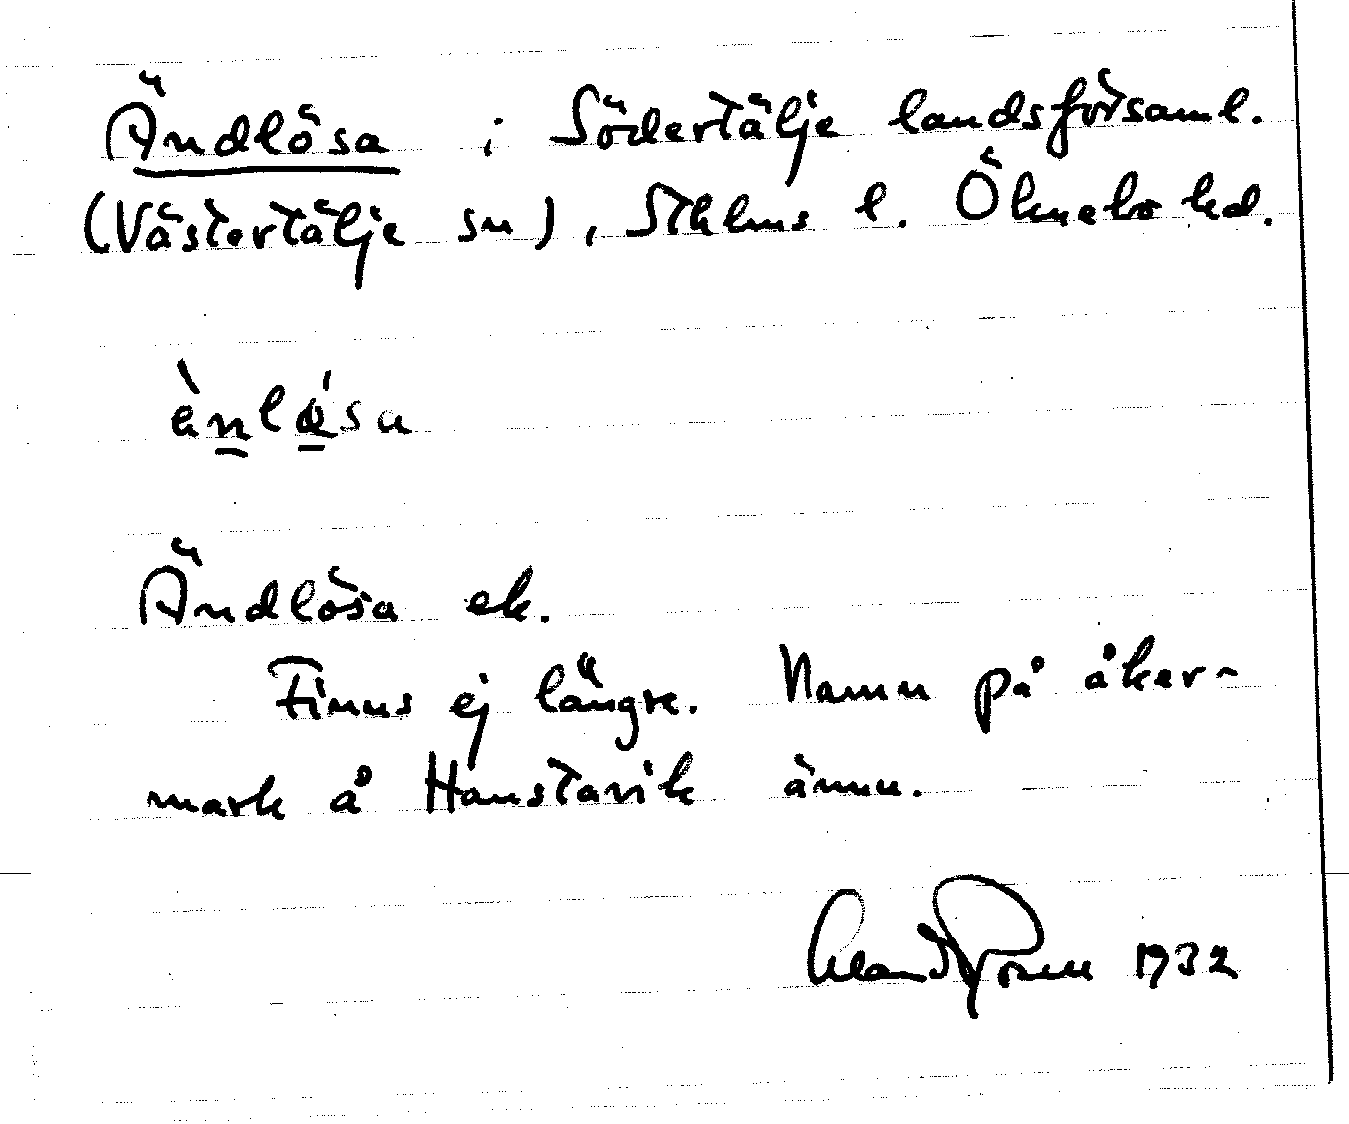 Ändlösa i Södertälje landsförsaml.
(Västertälje sn), Sthlms l. Öknebo hd.
ènlø̀sa
Ändlösa ek.
Finns ej längre. Namn på åker-
mark å Hanstavik ännu.
1932